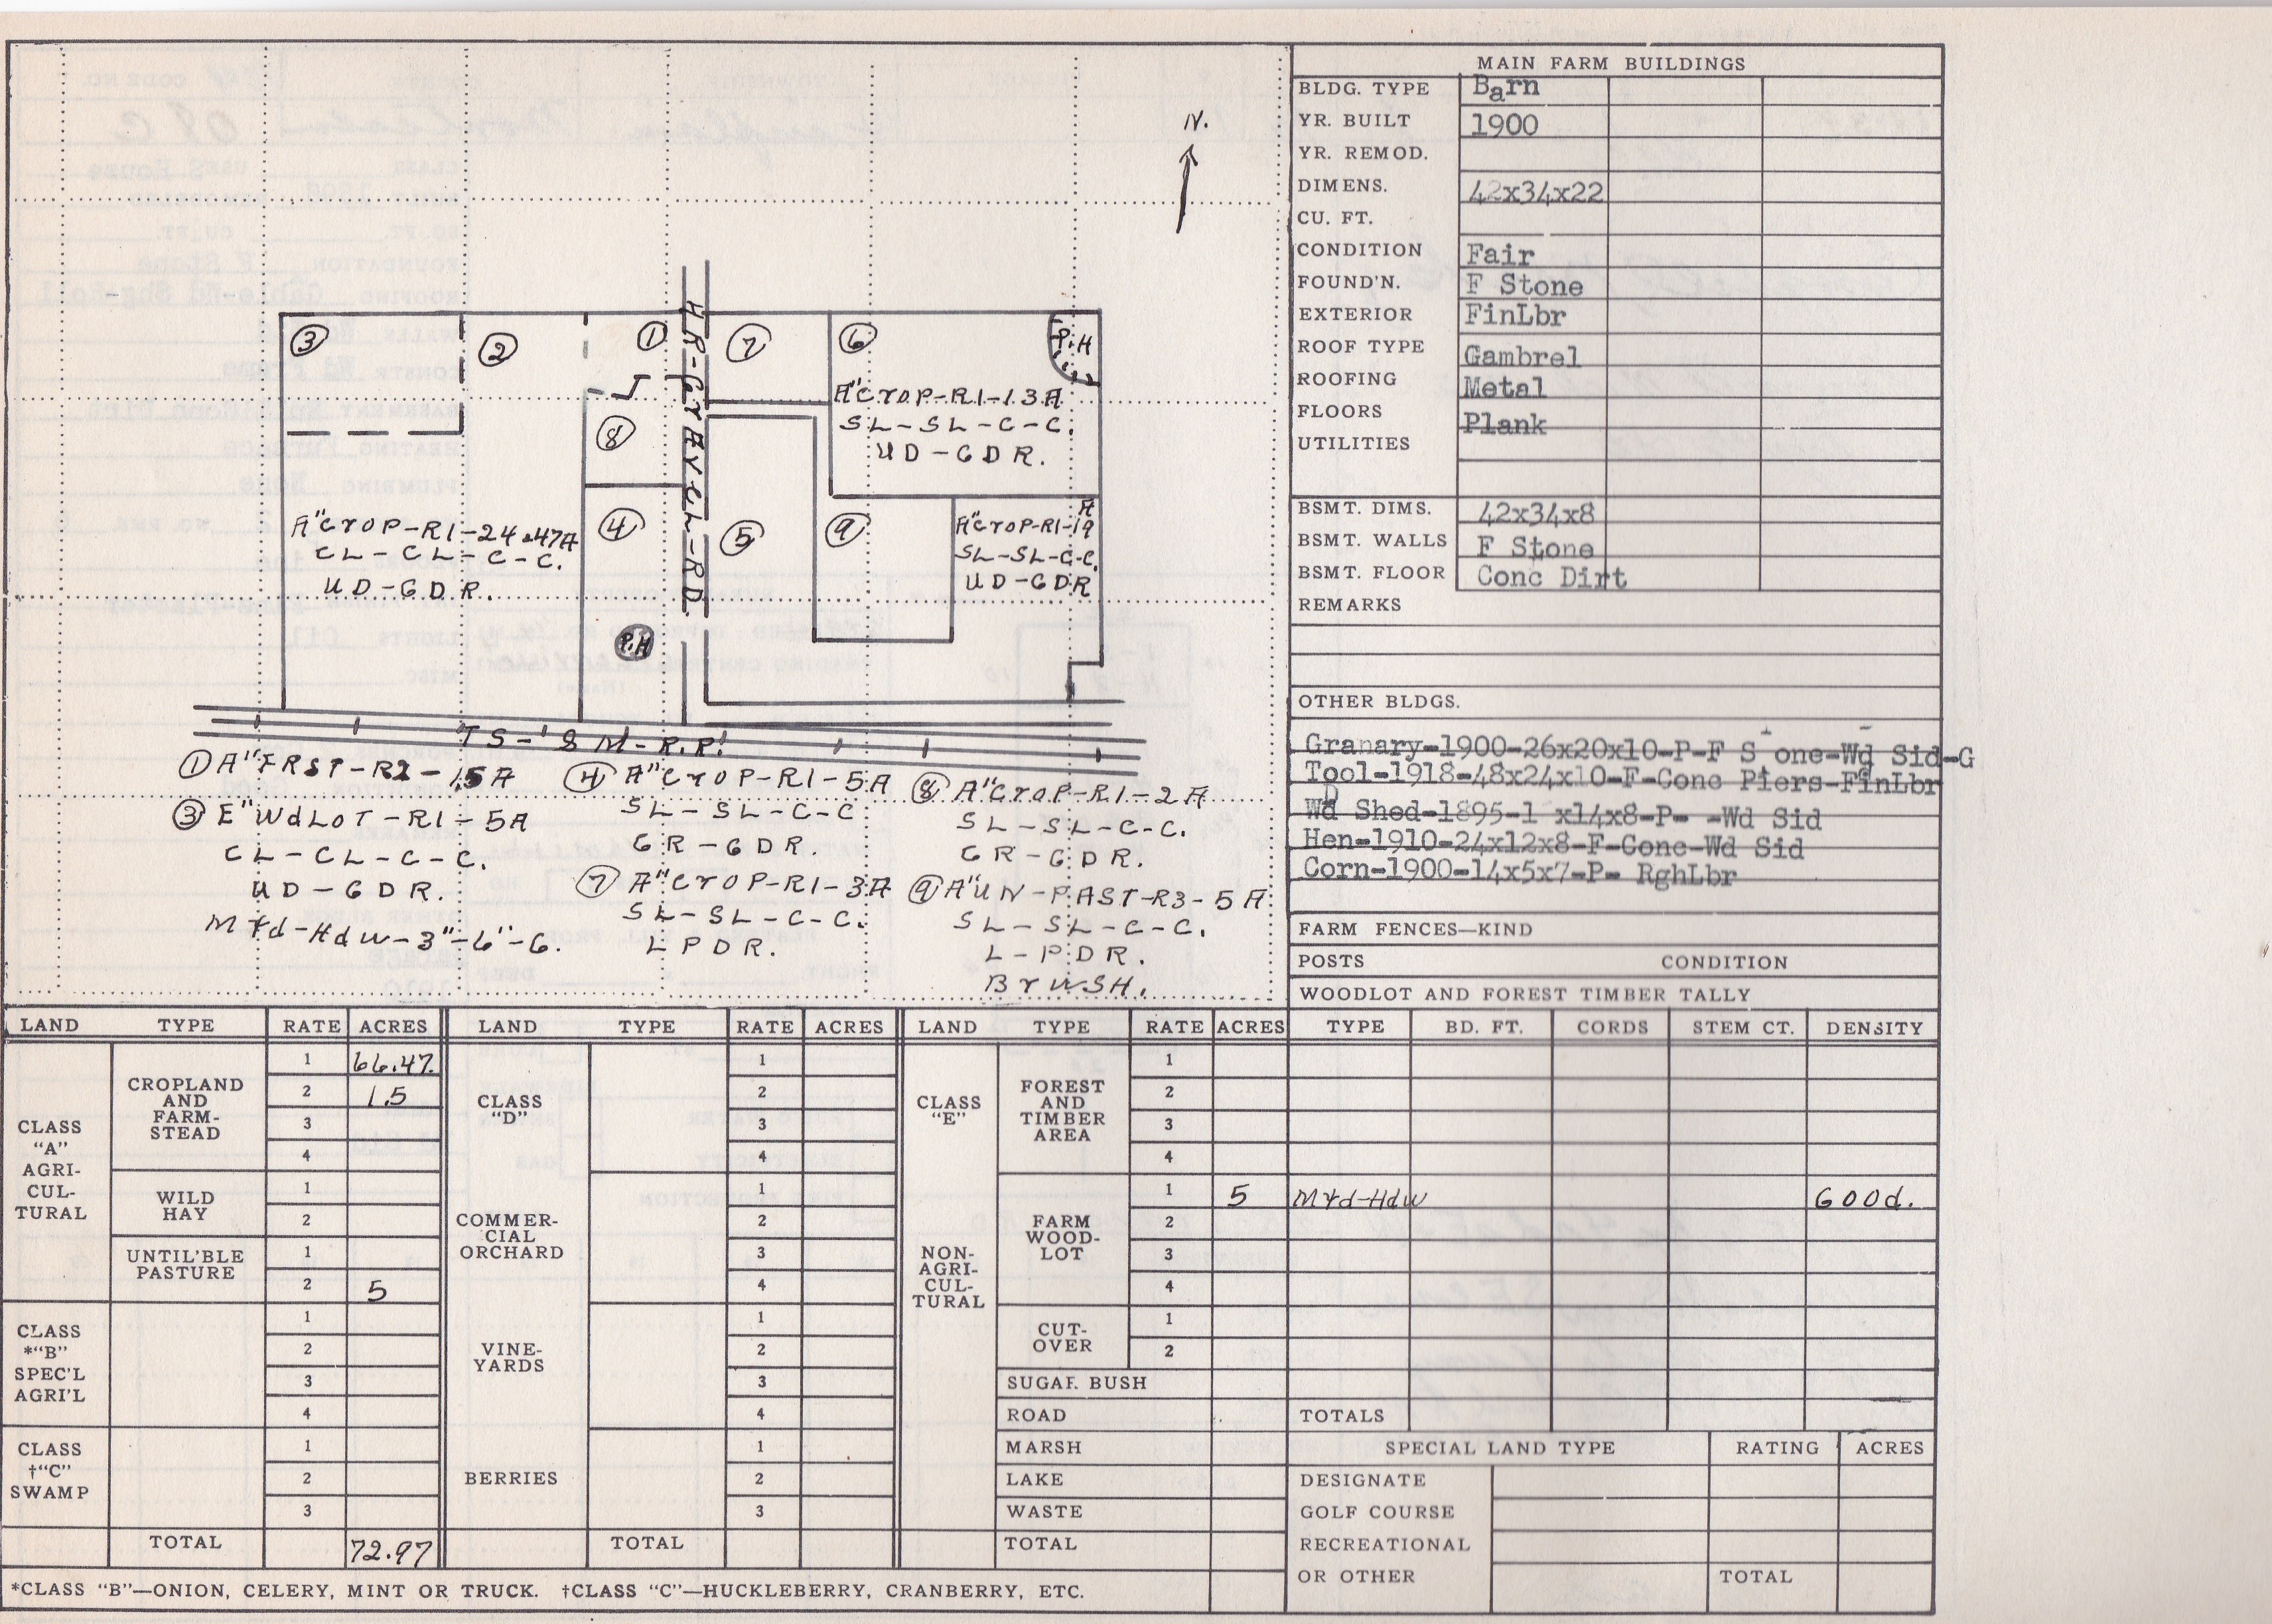 N.
③ ② ① ⑦ ⑥ P.H
HR-GrAvEL-RD.
A"CroP-R1-13A
SL-SL-C-C.
UD-GDR.
⑧
A"CroP-R1-24.47A
CL-CL-C-C.
UD-GDR.
④ ⑤ ⑨
A"CroP-R1-19A
SL-SL-C-C.
UD-GDR
P.H
TS-'S M-R.R.
① A"FRST-R2-1.5A
③ E"WdLoT-R1-5A
CL-CL-C-C.
UD-GDR.
Mxd-Hdw-3"-6"-G.
④ A"CroP-R1-5A
SL-SL-C-C
GR-GDR.
⑦ A"CroP-R1-3A
SL-SL-C-C.
LPDR.
⑧ A"CroP-R1-2A
SL-SL-C-C.
GR-GDR.
⑨ A"UN-PAST-R3-5A
SL-SL-C-C.
L-PDR.
BrUSH.
MAIN FARM BUILDINGS
BLDG. TYPE Barn
YR. BUILT 1900
YR. REMOD.
DIMENS. 42x34x22
CU. FT.
CONDITION Fair
FOUND'N. F Stone
EXTERIOR FinLbr
ROOF TYPE Gambrel
ROOFING Metal
FLOORS Plank
UTILITIES
BSMT. DIMS. 42x34x8
BSMT. WALLS F Stone
BSMT. FLOOR Conc Dirt
REMARKS
OTHER BLDGS.
Granary-1900-26x20x10-P-F S one-Wd Sid-G
Tool-1918-48x24x10-F-Conc Piers-FinLbr
Wd Shed-1895-1 x14x8-P- -Wd Sid
Hen-1910-24x12x8-F-Conc-Wd Sid
Corn-1900-14x5x7-P- RghLbr
FARM FENCES—KIND
POSTS CONDITION
WOODLOT AND FOREST TIMBER TALLY
LAND TYPE RATE ACRES LAND TYPE RATE ACRES LAND TYPE RATE ACRES TYPE BD. FT. CORDS STEM CT. DENSITY
CLASS
"A"
AGRI-
CUL-
TURAL
CROPLAND
AND
FARM-
STEAD
1 66.47
2 1.5
3
4
WILD
HAY
1
2
UNTIL'BLE
PASTURE
1
2 5
CLASS
*"B"
SPEC'L
AGRI'L
1
2
3
4
CLASS
†"C"
SWAMP
1
2
3
TOTAL 72.97
CLASS
"D"
1
2
3
4
COMMER-
CIAL
ORCHARD
1
2
3
4
VINE-
YARDS
1
2
3
4
BERRIES
1
2
3
TOTAL
CLASS
"E"
NON-
AGRI-
CUL-
TURAL
FOREST
AND
TIMBER
AREA
1
2
3
4
FARM
WOOD-
LOT
1 5 Mxd-Hdw Good.
2
3
4
CUT-
OVER
1
2
SUGAR BUSH
ROAD
MARSH
LAKE
WASTE
TOTAL
TOTALS
SPECIAL LAND TYPE RATING ACRES
DESIGNATE
GOLF COURSE
RECREATIONAL
OR OTHER TOTAL
*CLASS "B"—ONION, CELERY, MINT OR TRUCK. †CLASS "C"—HUCKLEBERRY, CRANBERRY, ETC.